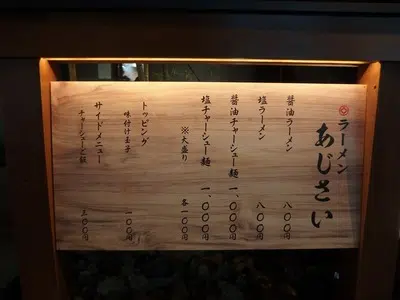 ラーメン
あじさい
醤油ラーメン 八〇〇円
塩ラーメン 八〇〇円
醤油チャーシュー麺 一、〇〇〇円
塩チャーシュー麺 一、〇〇〇円
※大盛り 各一〇〇円
トッピング
味付け玉子 一〇〇円
サイドメニュー
チャーシュー飯 三〇〇円